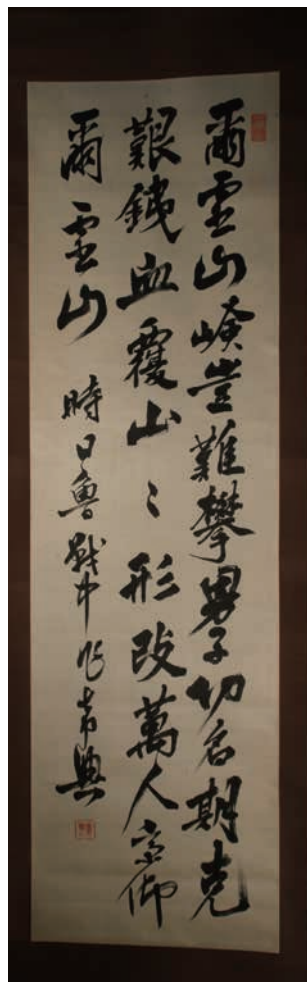 爾霊山嶮豈難攀男子功名期克
艱銕血覆山〻形改萬人斉仰
爾霊山 時日魯戦中作 希典